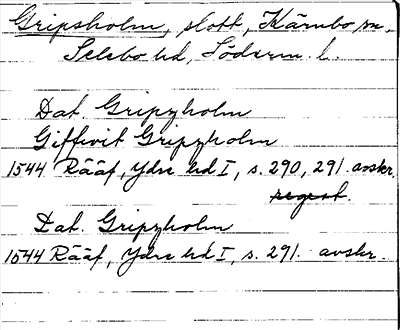 Gripsholm, slott, Kärnbo sn,
Selebo hd, Söderm. l.
Dat. Gripzholm
Giffvit Gripzholm
1544 Rääf, Ydre hd I, s. 290, 291. avskr.
regest.
Dat. Gripzholm
1544 Rääf, Ydre hd I, s. 291. avskr.